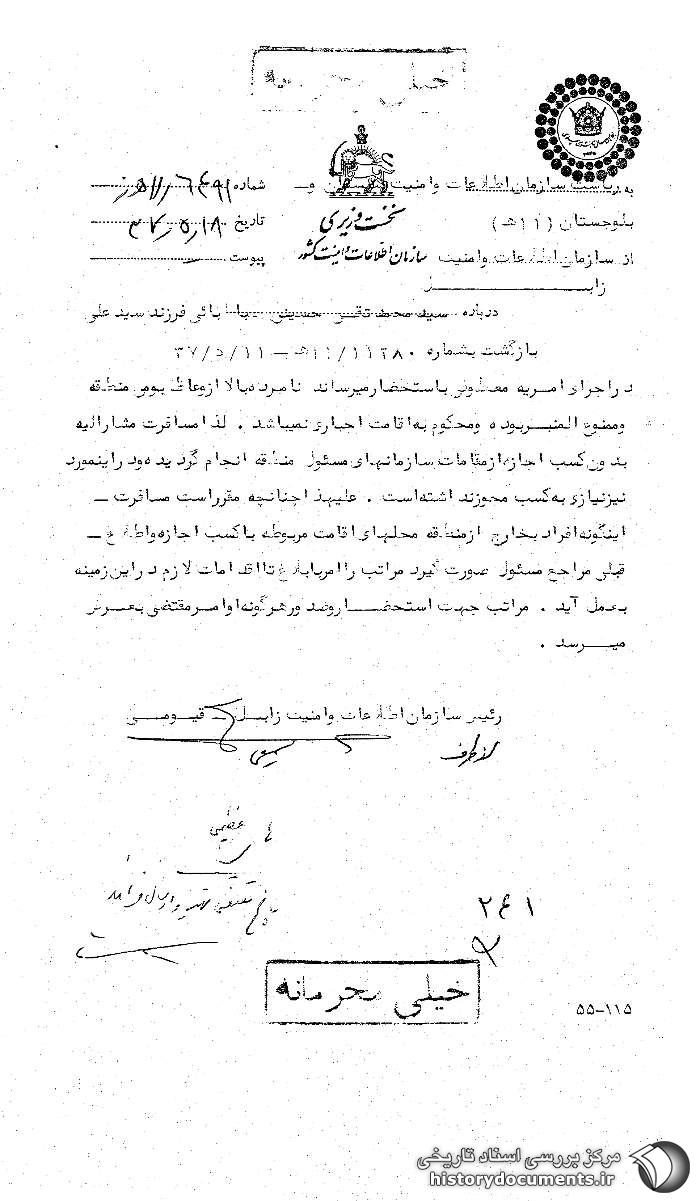 خیلی
به ریاست سازمان اطلاعات وامنیت و
بلوچستان (۱۱هـ)
از سازمان اطلاعات وامنیت
زابل
نخست وزیری
سازمان اطلاعات و امنیت کشور
شماره
تاریخ
پیوست
درباره سید محمد تقی حسینی طباطبائی فرزند سید علی
بازگشت بشماره ۱۱/۱۱۲۸۰هـ – ۳۷/۵/۱۱
در اجرای امریه معطوفی باستحضار میرساند نامبرده بالا ازوعاظ بومی منطقه
وممنوع المنبر بوده ومحکوم به اقامت اجباری نمیباشد . لذا مسافرت مشارالیه
بدون کسب اجازه ازمقامات سازمانهای مسئول منطقه انجام گردیده ودراینمورد
نیزنیازی به کسب مجوزنداشته است . علیهذا چنانچه مقرراست مسافرت –
اینگونه افراد بخارج ازمنطقه محلهای اقامت مربوطه باکسب اجازه واطلاع –
قبلی مراجع مسئول صورت گیرد مراتب را امربابلاغ تااقدامات لازم دراین زمینه
بعمل آید . مراتب جهت استحضار وصدورهرگونه اوامرمقتضی بعرض
میرسد .
رئیس سازمان اطلاعات وامنیت زابل – قیومی
از طرف
عظیمی
خیلی محرمانه
۵۵-۱۱۵
مرکز بررسی اسناد تاریخی
historydocuments.ir